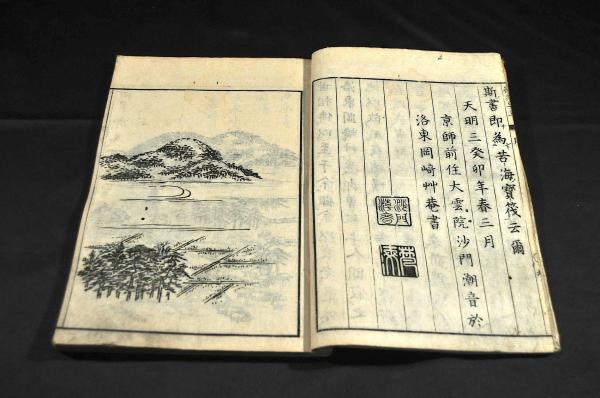 斯書即為苦海寶筏云爾
天明三癸卯年春三月
京師前住大雲院沙門潮音於
洛東岡崎艸菴書